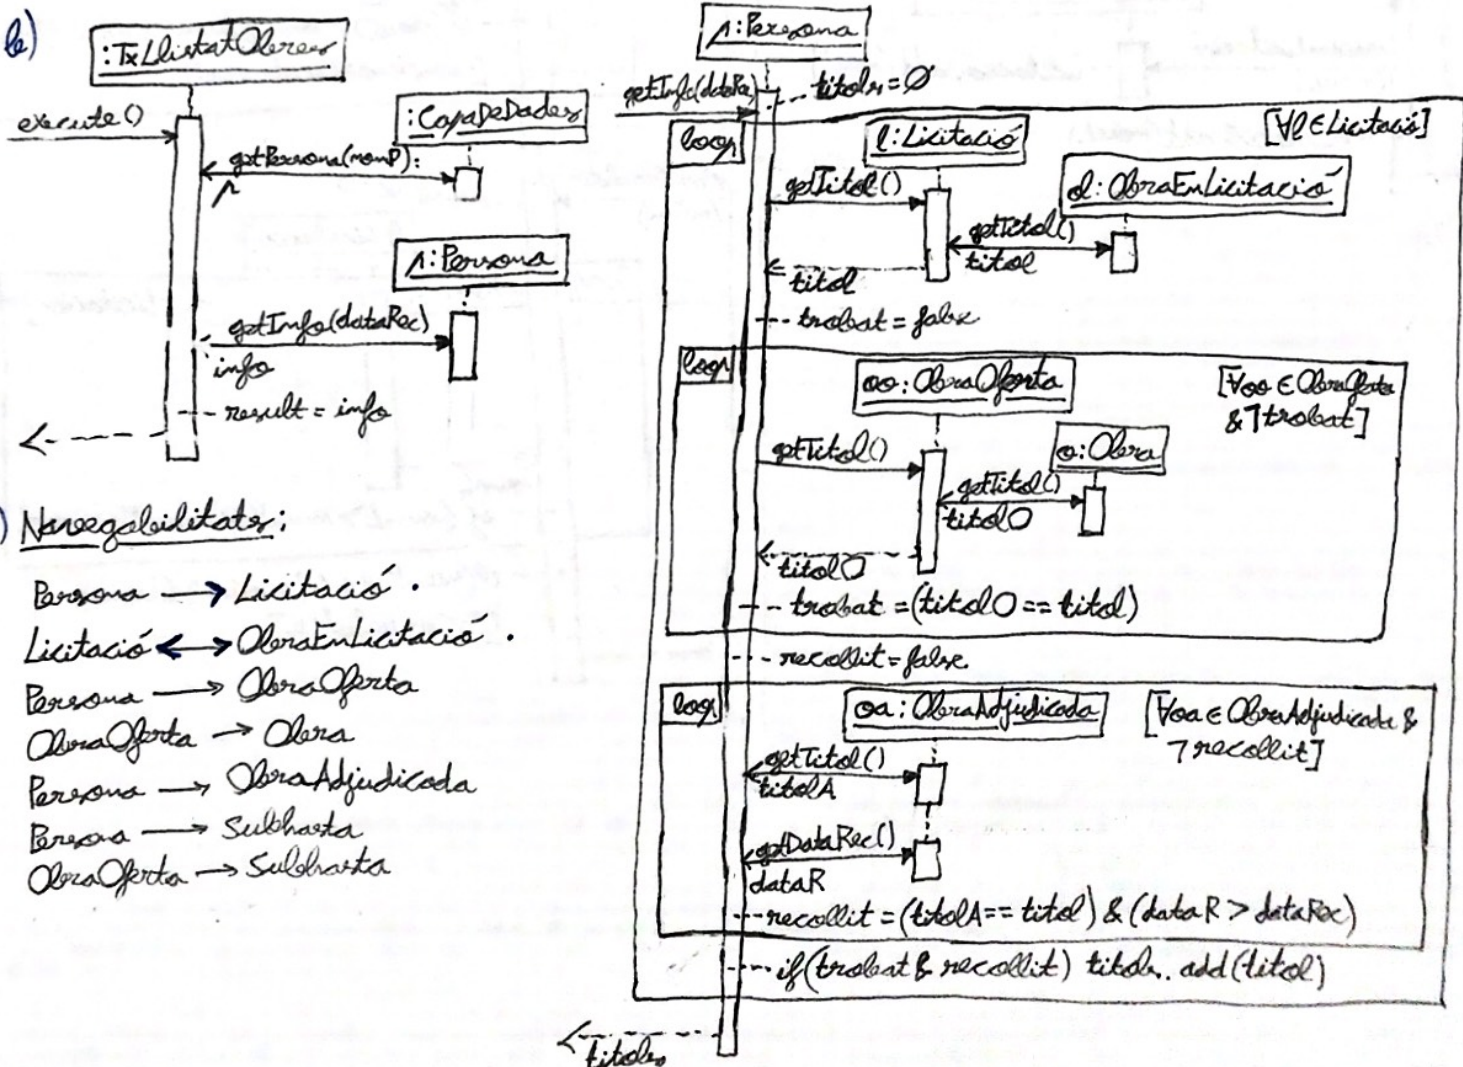 b)
:TxLlistatObres
execute()
:CapaDeDades
getPersona(nomP):
p
p:Persona
getInfo(dataRec)
info
result = info
) Navegabilitats:
Persona → Licitació .
Licitació ↔ ObraEnLicitació .
Persona → ObraOferta
ObraOferta → Obra
Persona → ObraAdjudicada
Persona → Subhasta
ObraOferta → Subhasta
p:Persona
getInfo(dataRec)
titols = Ø
loop
[∀l ∈ Licitació]
l:Licitació
ol:ObraEnLicitació
getTitol()
getTitol()
titol
titol
trobat = false
loop
[∀oo ∈ ObraOferta
& ¬trobat]
oo:ObraOferta
o:Obra
getTitol()
getTitol()
titolO
titolO
trobat = (titolO == titol)
recollit = false
loop
[∀oa ∈ ObraAdjudicada &
¬recollit]
oa:ObraAdjudicada
getTitol()
titolA
getDataRec()
dataR
recollit = (titolA == titol) & (dataR > dataRec)
if(trobat & recollit) titols.add(titol)
titols